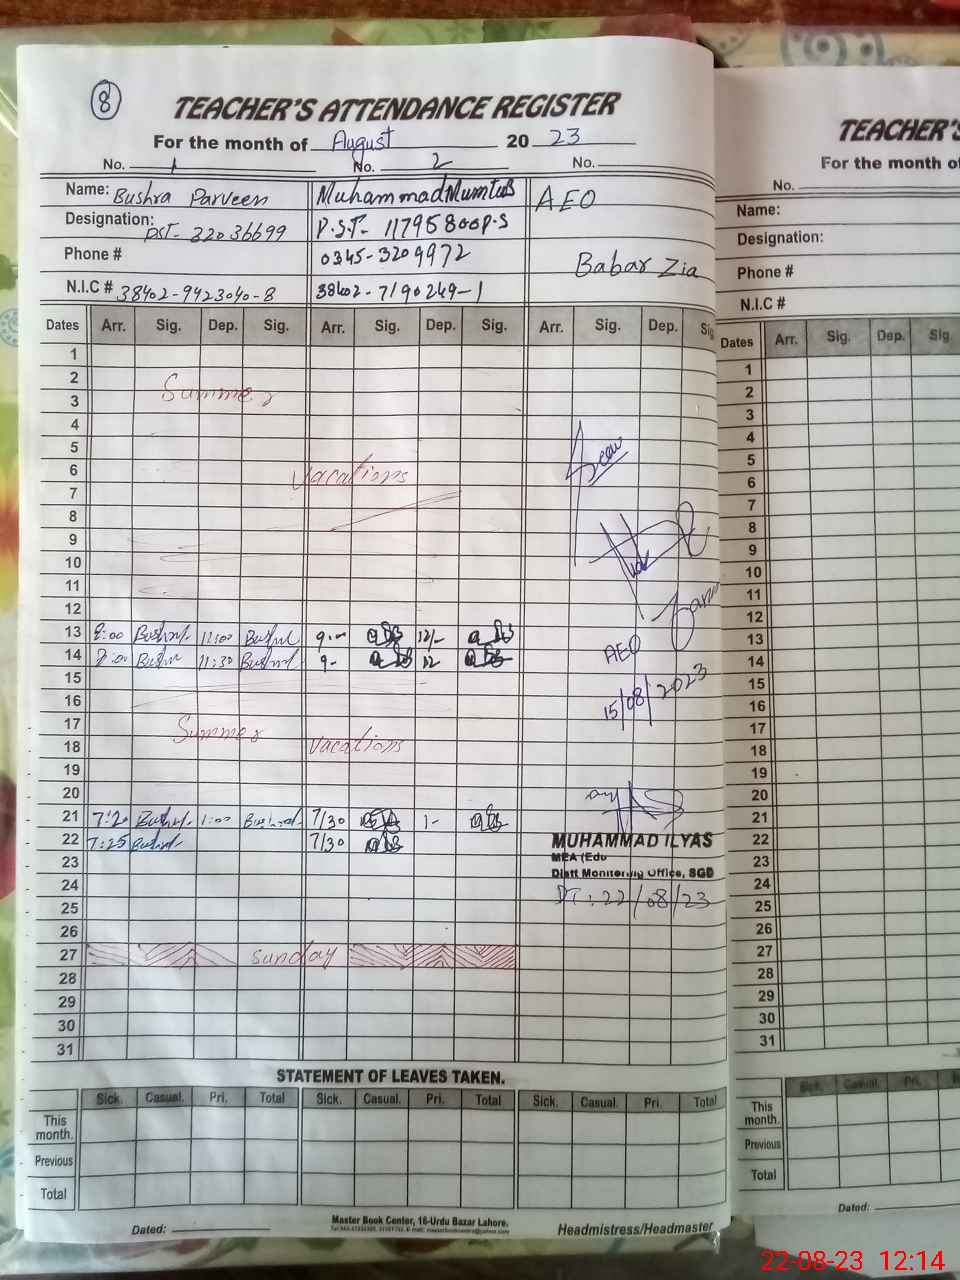 8
TEACHER'S ATTENDANCE REGISTER
For the month of August 2023
No. 1 No. 2 No.
Name: Bushra Parveen Muhammad Mumtaz AEO
Designation: PST- 32036699 P.S.T- 11795800P.S
Phone # 0345-3209972 Babar Zia
N.I.C # 38402-9423040-8 38402-7190249-1
Dates Arr. Sig. Dep. Sig. Arr. Sig. Dep. Sig. Arr. Sig. Dep. Sig
1
2
Summer
3
4
5
6
Vacations
7
8
9
10
11
12
13 8:00 Bushra 11:00 Bushra 9- 12/-
14 Bushra 11:30 Bushra 9- 12
AEO
15
16
15/08/2023
17
Summer vacations
18
19
20
21 7:20 Bushra 1:00 Bushra 7/30 1-
22 7:25 Bushra 7/30
MUHAMMAD ILYAS
MEA (Edu
Distt Monitoring Office, SGD
DT: 22/08/23
23
24
25
26
27 Sunday
28
29
30
31
STATEMENT OF LEAVES TAKEN.
Sick. Casual. Pri. Total Sick. Casual. Pri. Total Sick. Casual. Pri. Total
This month.
Previous
Total
Dated:
Master Book Center, 16-Urdu Bazar Lahore.
Headmistress/Headmaster
TEACHER'S
For the month of
No.
Name:
Designation:
Phone #
N.I.C #
Dates Arr. Sig. Dep. Sig.
1
2
3
4
5
6
7
8
9
10
11
12
13
14
15
16
17
18
19
20
21
22
23
24
25
26
27
28
29
30
31
Sick. Casual. Pri.
This month.
Previous
Total
Dated:
22-08-23 12:14